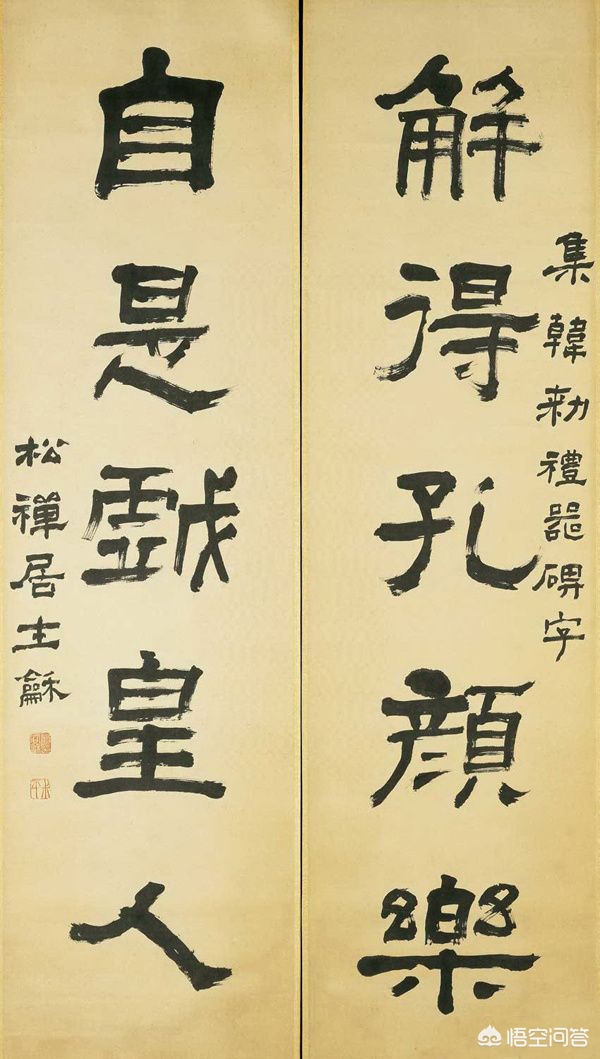 集韓勑禮器碑字
解得孔顏樂
自是戲皇人
松禪居士龢
悟空问答